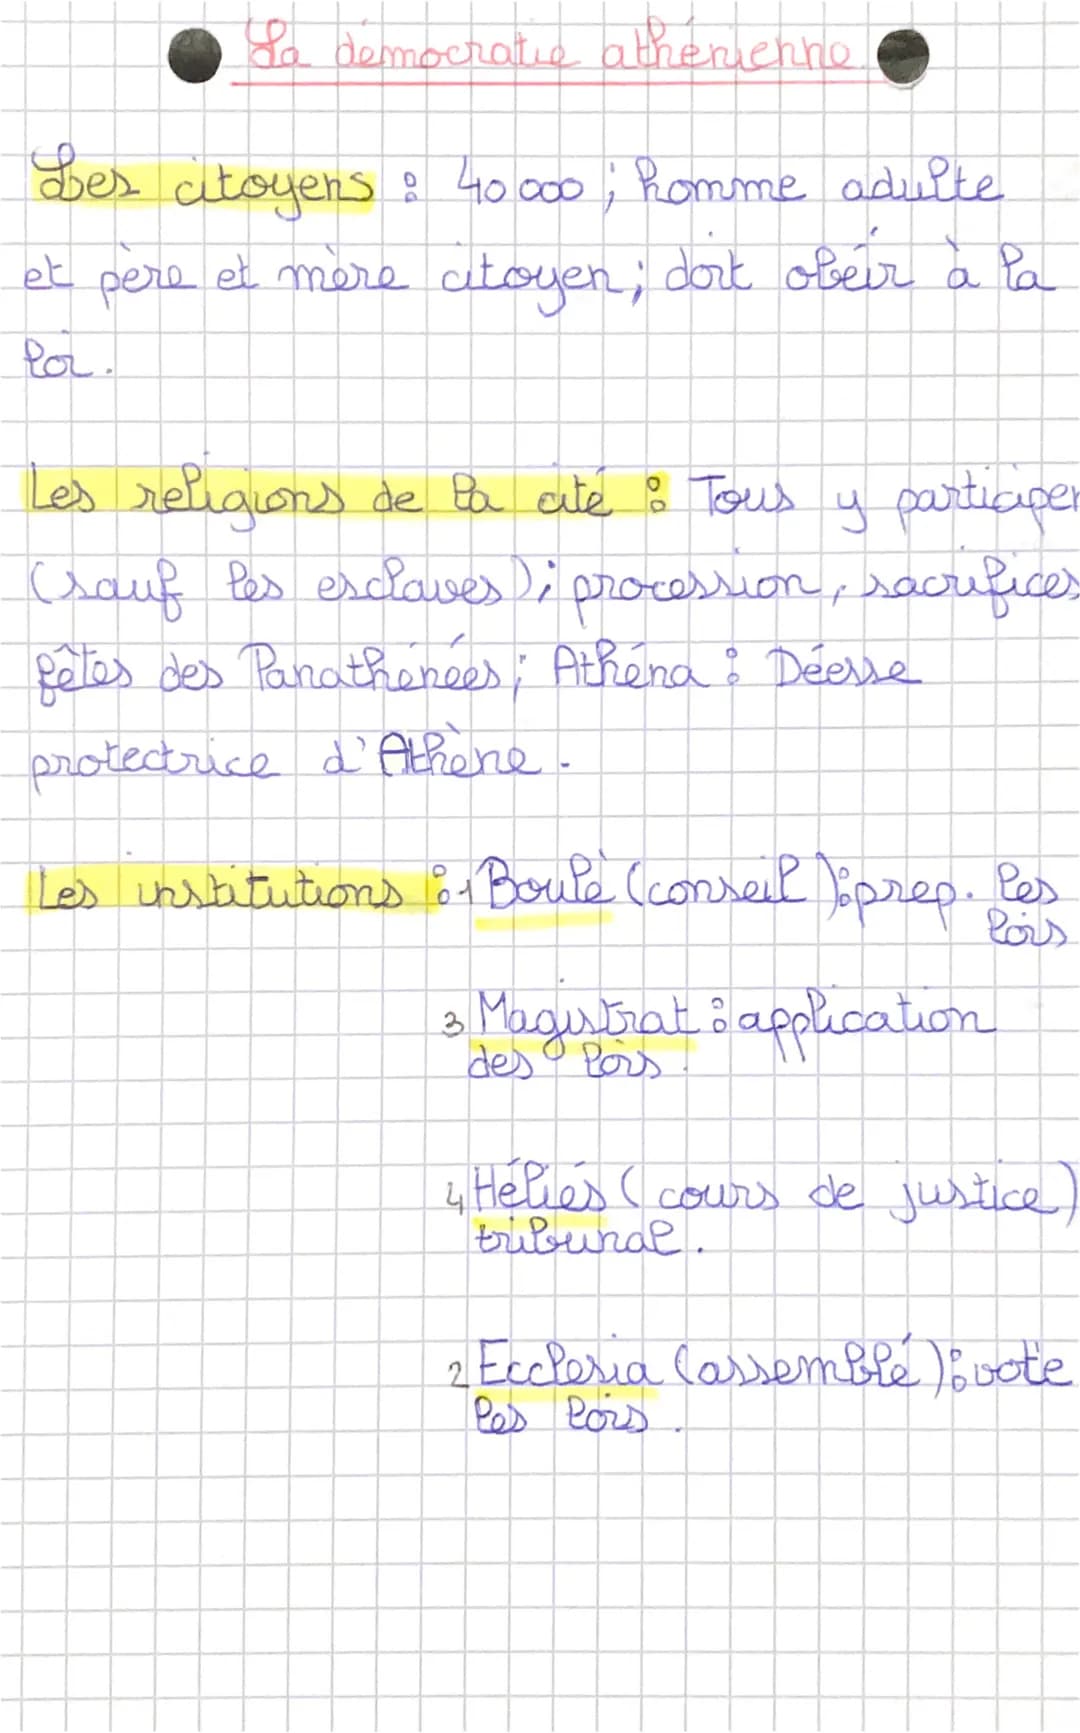 La démocratie athénienne
Les citoyens : 40 000 ; homme adulte
et père et mère citoyen ; doit obéir à la
loi.
Les religions de la cité : Tous y participer
(sauf les esclaves) ; procession, sacrifices
fêtes des Panathénées ; Athéna : Déesse
protectrice d'Athène.
Les institutions : 1 Boulé (conseil) : prep. les
lois
3 Magistrat : application
des lois.
4 Héliés (cours de justice)
tribunal.
2 Ecclesia (assemblé) : vote
les lois.